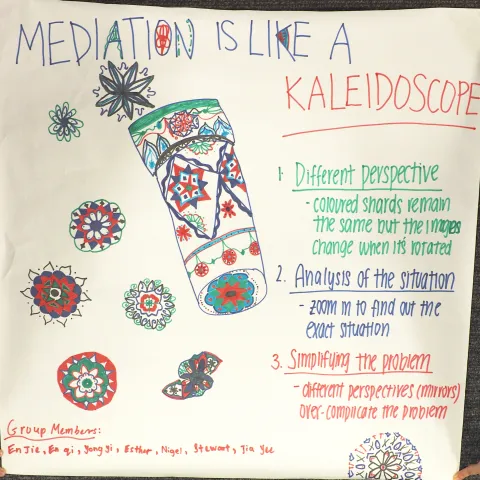 MEDIATION IS LIKE A
KALEIDOSCOPE
1. Different perspective
- coloured shards remain
the same but the images
change when it's rotated
2. Analysis of the situation
- zoom in to find out the
exact situation
3. Simplifying the problem
- different perspectives (mirrors)
over-complicate the problem
Group Members:
En Jie, En qi, Yong Yi, Esther, Nigel, Stewart, Jia Yee